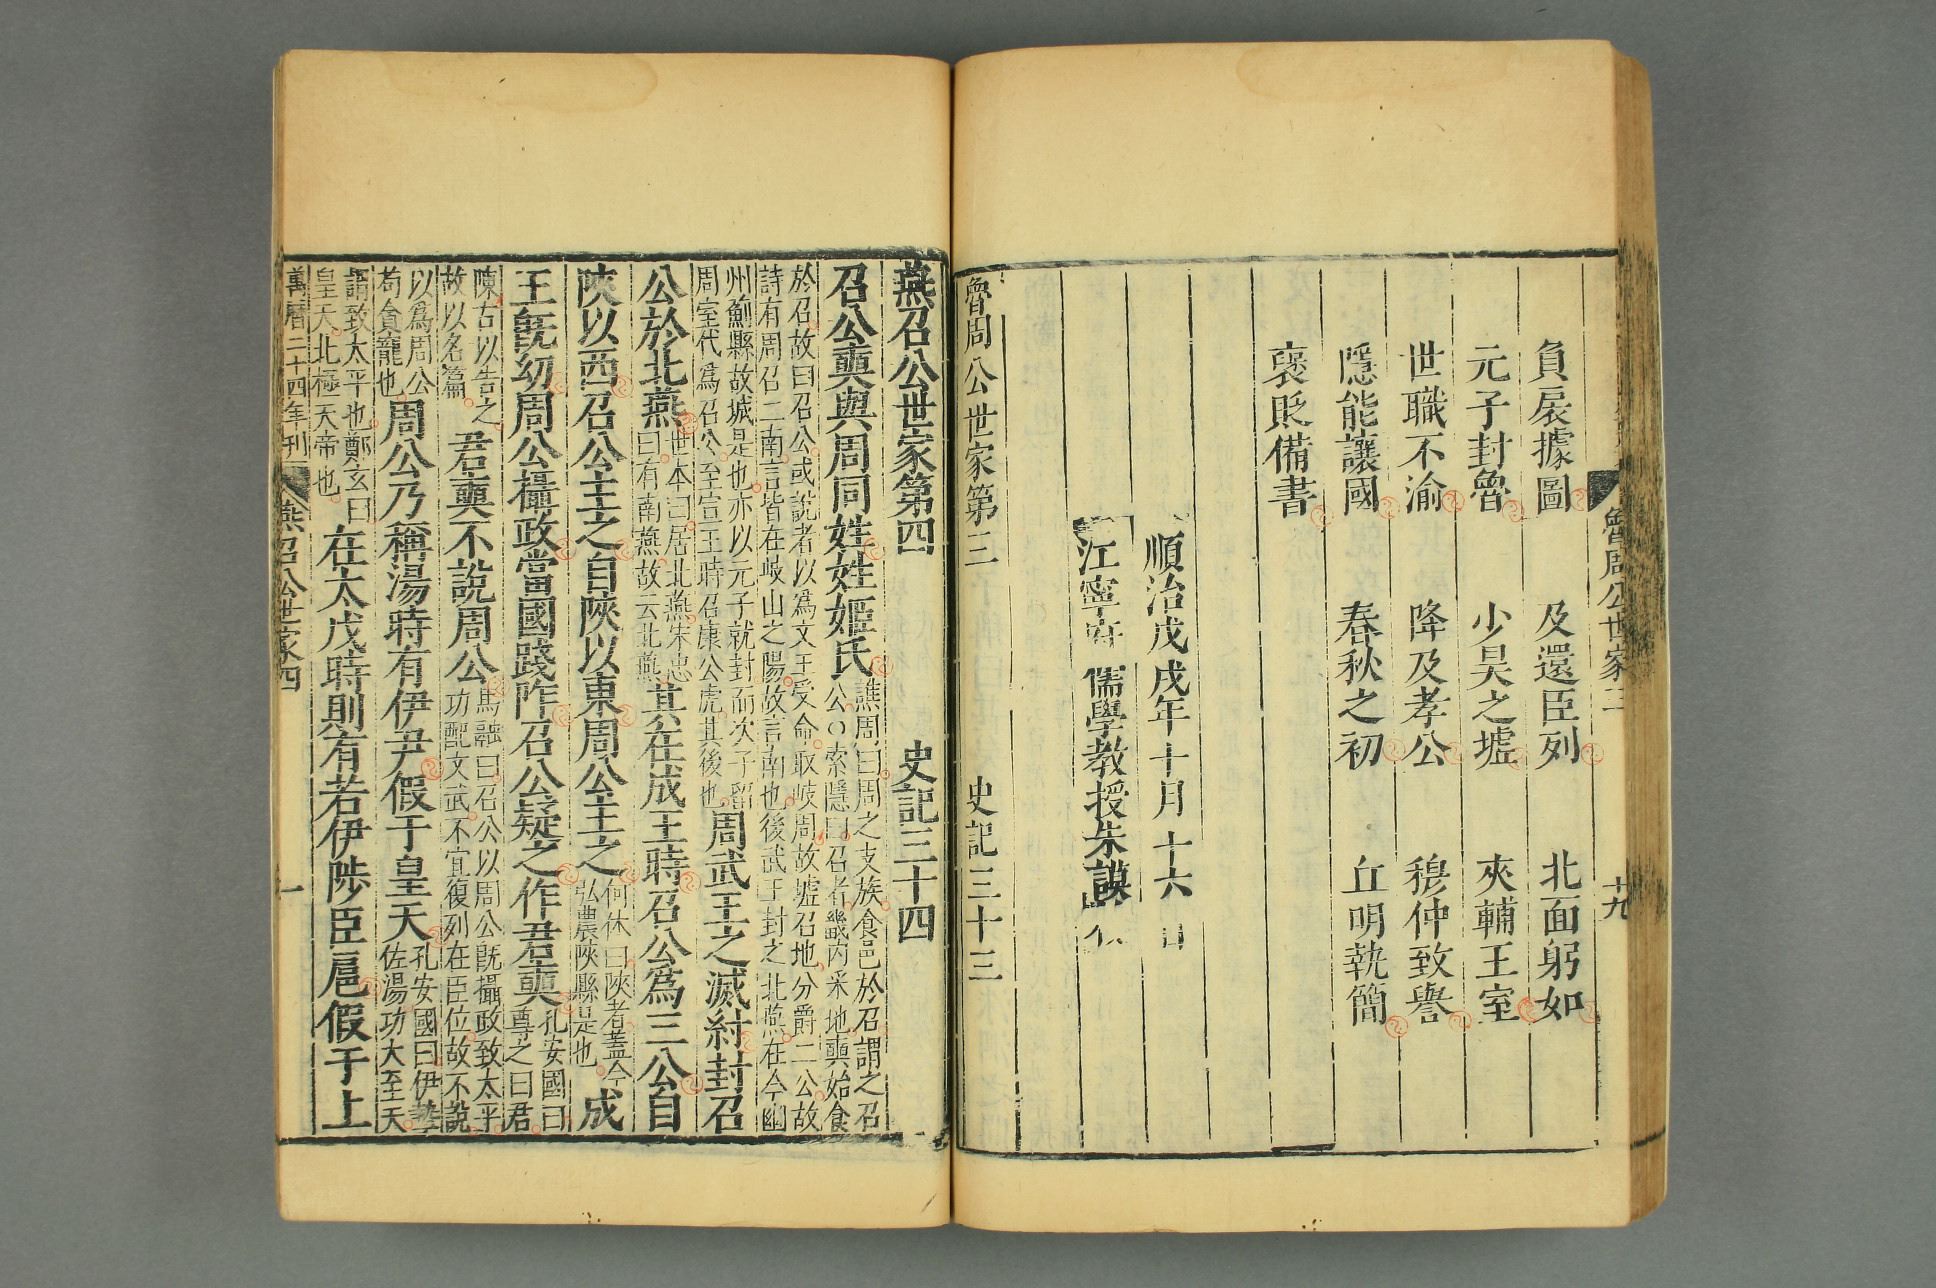 魯周公世家三 十九
負扆據圖 及還臣列 北面躬如
元子封魯 少昊之墟 夾輔王室
世職不渝 降及孝公 穆仲致譽
隱能讓國 春秋之初 丘明執簡
褒貶備書
順治戊戌年十月十六日
江寧府儒學教授朱謨
魯周公世家第三 史記三十三
燕召公世家第四 史記三十四
召公奭與周同姓姓姬氏
譙周曰周之支族食邑於召謂之召
公○索隱曰召者畿内采地奭始食
於召故曰召公或說者以爲文王受命取岐周故墟召地分爵二公故
詩有周召二南言皆在岐山之陽故言南也後武王封之北燕在今幽
州薊縣故城是也亦以元子就封而次子留
周室代爲召公至宣王時召康公虎其後也
周武王之滅紂封召
公於北燕
世本曰居北燕宋忠
曰有南燕故云北燕
其在成王時召公爲三公自
陝以西召公主之自陝以東周公主之
何休曰陝者蓋今
弘農陝縣是也
成
王旣幼周公攝政當國踐阼召公疑之作君奭
孔安國曰
尊之曰君
陳古以告之
故以名篇
君奭不說周公
馬融曰召公以周公旣攝政致太平
功配文武不宜復列在臣位故不說
以爲周公
苟貪寵也
周公乃稱湯時有伊尹假于皇天
孔安國曰伊摯
佐湯功大至天
謂致太平也鄭玄曰
皇天北極天帝也
在太戊時則有若伊陟臣扈假于上
萬曆二十四年刊 燕召公世家四 一